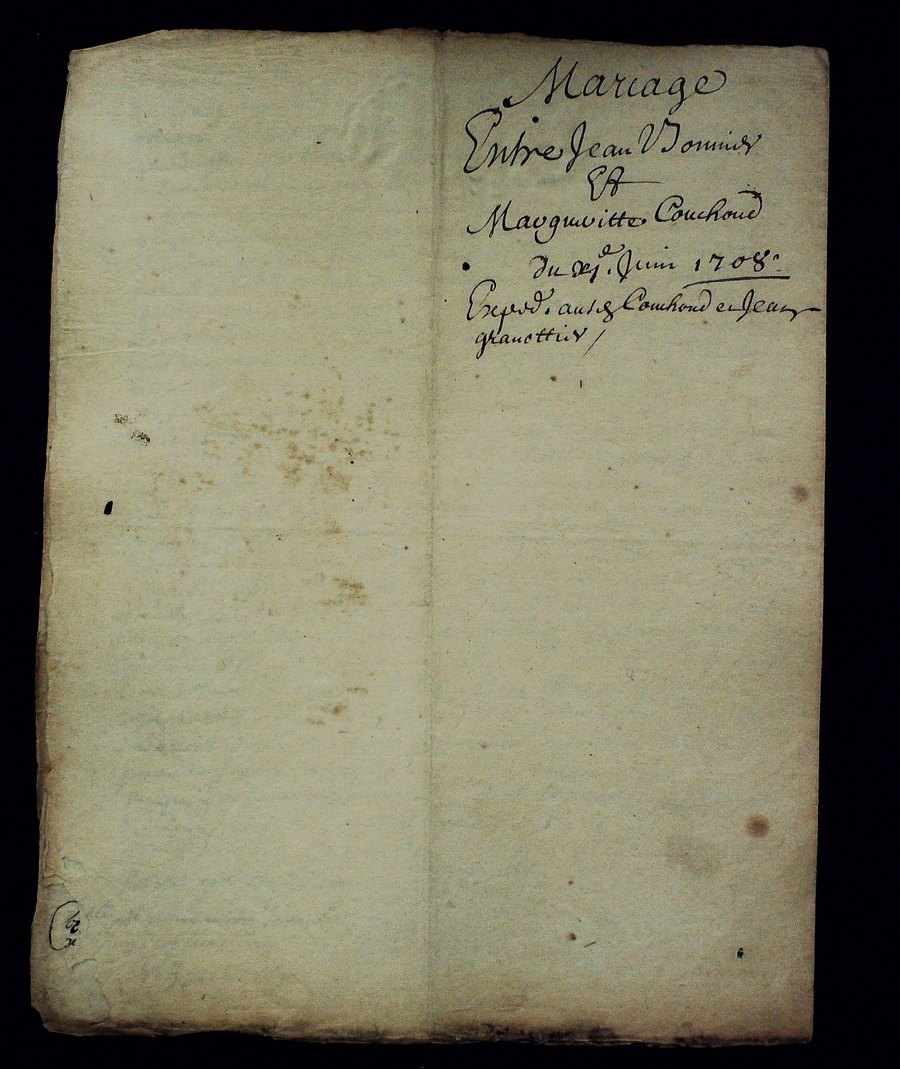 Mariage
Entre Jean Bonnier
Et
Margueritte Couchoud
Du xj.e Juin 1708.
Exped. aud Couchoud et Jean
granottier /